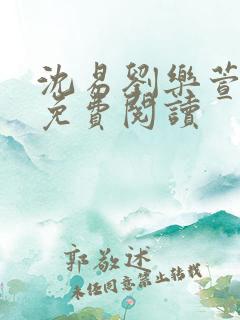 沈易劉樂萱
免費閱讀
郭敬述
未經同意禁止轉載